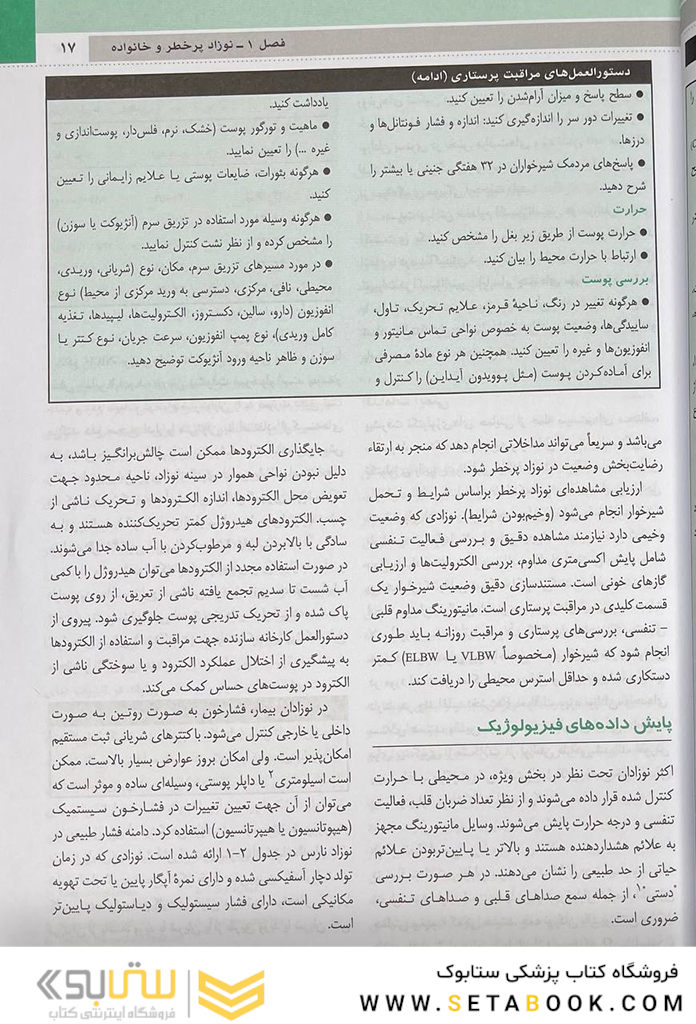 فصل ۱ ـ نوزاد پرخطر و خانواده
۱۷
دستورالعمل‌های مراقبت پرستاری (ادامه)
● سطح پاسخ و میزان آرام‌شدن را تعیین کنید.
● تغییرات دور سر را اندازه‌گیری کنید: اندازه و فشار فونتانل‌ها و
درزها.
● پاسخ‌های مردمک شیرخواران در ۳۲ هفتگی جنینی یا بیشتر را
شرح دهید.
حرارت
● حرارت پوست از طریق زیر بغل را مشخص کنید.
● ارتباط با حرارت محیط را بیان کنید.
بررسی پوست
● هرگونه تغییر در رنگ، ناحیهٔ قرمز، علایم تحریک، تاول،
ساییدگی‌ها، وضعیت پوست به خصوص نواحی تماس مانیتور و
انفوزیون‌ها و غیره را تعیین کنید. همچنین هر نوع مادهٔ مصرفی
برای آماده‌کردن پوست (مثل پوویدون آیداین) را کنترل و
یادداشت کنید.
● ماهیت و تورگور پوست (خشک، نرم، فلس‌دار، پوست‌اندازی و
غیره ...) را تعیین نمایید.
● هرگونه بثورات، ضایعات پوستی یا علایم زایمانی را تعیین
کنید.
● هرگونه وسیله مورد استفاده در تزریق سرم (آنژیوکت یا سوزن)
را مشخص کرده و از نظر نشت کنترل نمایید.
● در مورد مسیرهای تزریق سرم، مکان، نوع (شریانی، وریدی،
محیطی، نافی، مرکزی، دسترسی به ورید مرکزی از محیط) نوع
انفوزیون (دارو، سالین، دکستروز، الکترولیت‌ها، لیپیدها، تغذیه
کامل وریدی)، نوع پمپ انفوزیون، سرعت جریان، نوع کتتر یا
سوزن و ظاهر ناحیه ورود آنژیوکت توضیح دهید.
می‌باشد و سریعاً می‌تواند مداخلاتی انجام دهد که منجر به ارتقاء
رضایت‌بخش وضعیت در نوزاد پرخطر شود.
ارزیابی مشاهده‌ای نوزاد پرخطر براساس شرایط و تحمل
شیرخوار انجام می‌شود (وخیم‌بودن شرایط). نوزادی که وضعیت
وخیمی دارد نیازمند مشاهده دقیق و بررسی فعالیت تنفسی
شامل پایش اکسی‌متری مداوم، بررسی الکترولیت‌ها و ارزیابی
گازهای خونی است. مستندسازی دقیق وضعیت شیرخوار یک
قسمت کلیدی در مراقبت پرستاری است. مانیتورینگ مداوم قلبی
– تنفسی، بررسی‌های پرستاری و مراقبت روزانه باید طوری
انجام شود که شیرخوار (مخصوصاً VLBW یا ELBW) کمتر
دستکاری شده و حداقل استرس محیطی را دریافت کند.
پایش داده‌های فیزیولوژیک
اکثر نوزادان تحت نظر در بخش ویژه، در محیطی با حرارت
کنترل شده قرار داده می‌شوند و از نظر تعداد ضربان قلب، فعالیت
تنفسی و درجه حرارت پایش می‌شوند. وسایل مانیتورینگ مجهز
به علائم هشداردهنده هستند و بالاتر یا پایین‌تربودن علائم
حیاتی از حد طبیعی را نشان می‌دهند. در هر صورت بررسی
"دستی"۱، از جمله سمع صداهای قلبی و صداهای تنفسی،
ضروری است.
جایگذاری الکترودها ممکن است چالش‌برانگیز باشد، به
دلیل نبودن نواحی هموار در سینه نوزاد، ناحیه محدود جهت
تعویض محل الکترودها، اندازه الکترودها و تحریک ناشی از
چسب. الکترودهای هیدروژل کمتر تحریک‌کننده هستند و به
سادگی با بالابردن لبه و مرطوب‌کردن با آب ساده جدا می‌شوند.
در صورت استفاده مجدد از الکترودها می‌توان هیدروژل را با کمی
آب شست تا سدیم تجمع یافته ناشی از تعریق، از روی پوست
پاک شده و از تحریک تدریجی پوست جلوگیری شود. پیروی از
دستورالعمل کارخانه سازنده جهت مراقبت و استفاده از الکترودها
به پیشگیری از اختلال عملکرد الکترود و یا سوختگی ناشی از
الکترود در پوست‌های حساس کمک می‌کند.
در نوزادان بیمار، فشارخون به صورت روتین به صورت
داخلی یا خارجی کنترل می‌شود. با کتترهای شریانی ثبت مستقیم
امکان‌پذیر است. ولی امکان بروز عوارض بسیار بالاست. ممکن
است اسیلومتری۲ یا داپلر پوستی، وسیله‌ای ساده و موثر است که
می‌توان از آن جهت تعیین تغییرات در فشارخون سیستمیک
(هیپوتانسیون یا هیپرتانسیون) استفاده کرد. دامنه فشار طبیعی در
نوزاد نارس در جدول ۲-۱ ارائه شده است. نوزادی که در زمان
تولد دچار آسفیکسی شده و دارای نمرهٔ آپگار پایین یا تحت تهویه
مکانیکی است، دارای فشار سیستولیک و دیاستولیک پایین‌تر
است.
فروشگاه کتاب پزشکی ستابوک
WWW.SETABOOK.COM
ستابوک
فروشگاه اینترنتی کتاب